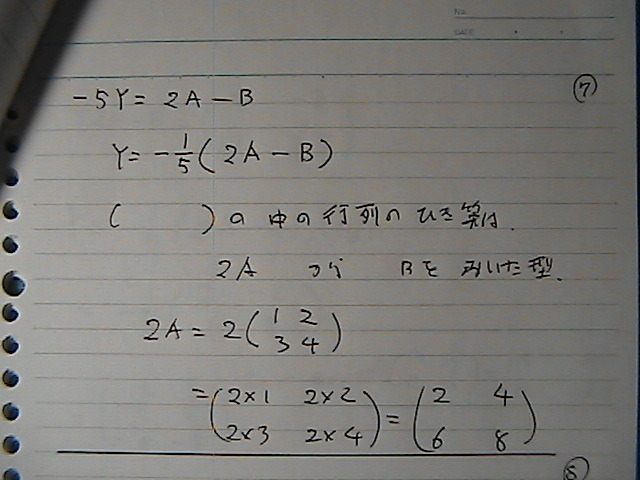 No.
DATE
⑦
-5Y = 2A - B
Y = -1/5 ( 2A - B )
(　　) の 中の 行列の ひき算は.
2A から Bを 引いた 型.
2A = 2 ( 1 2
3 4 )
= ( 2×1 2×2
2×3 2×4 ) = ( 2 4
6 8 )
⑧